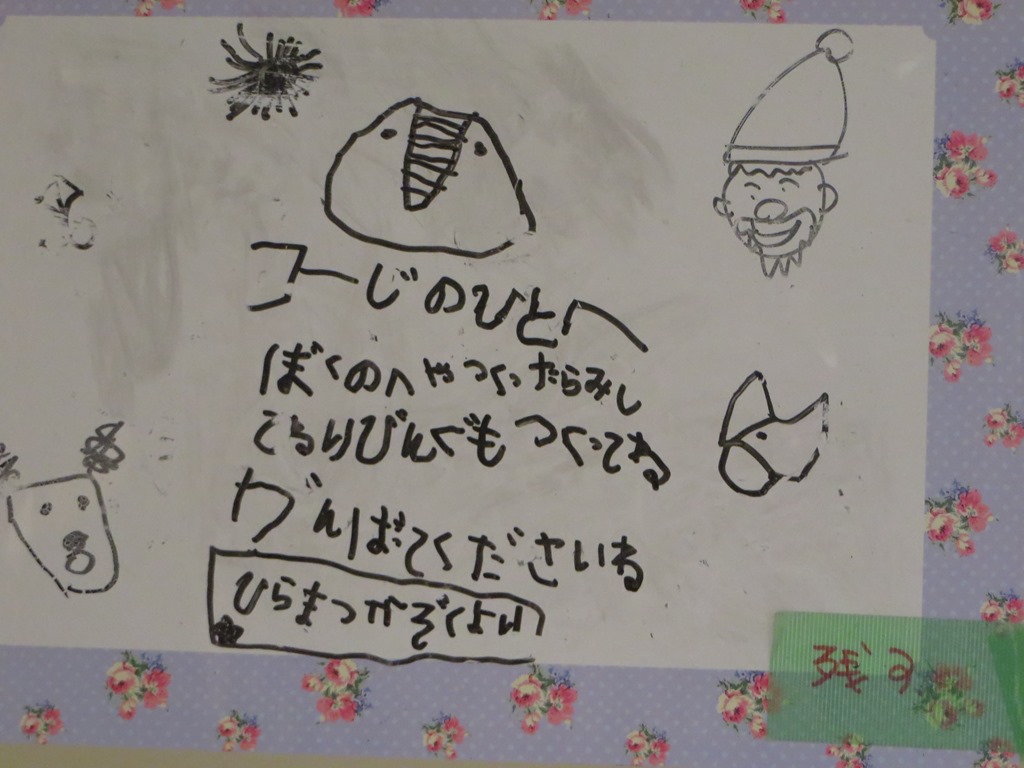 コーじのひとへ
ぼくのへやつくったらみし
てるりびんぐもつくってね
がんばてくださいね
ひらまつかぞくよい
残す